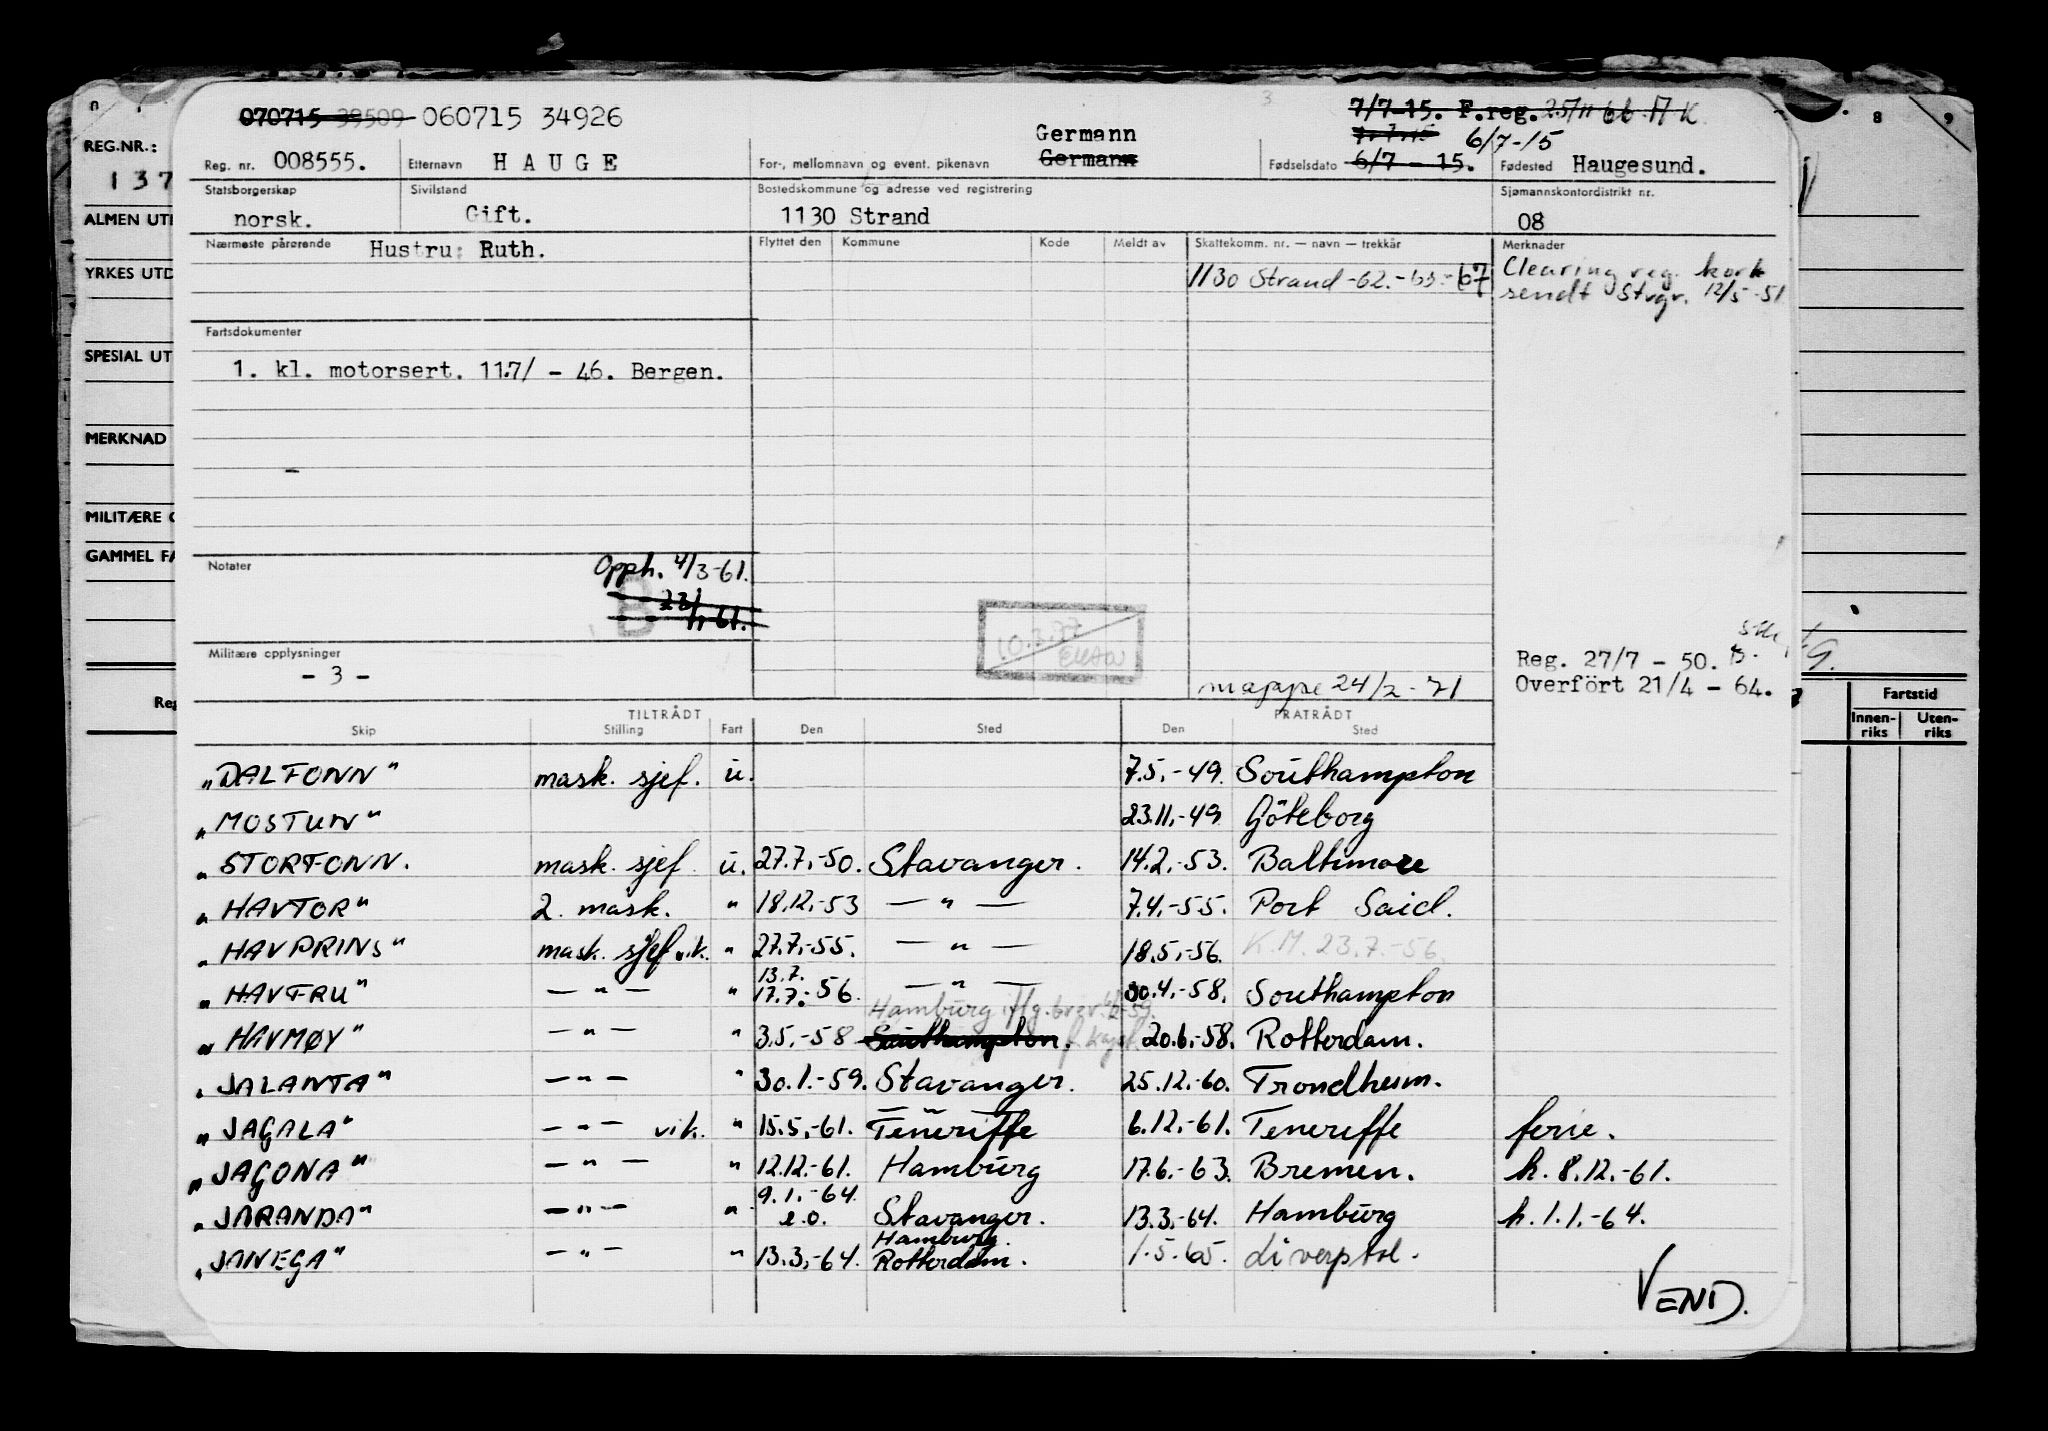 ~~070715 39509~~ 060715 34926
~~7/7-15. F.reg. 25/11 66 A K~~
Germann
6/7-15
REG.NR.:
Reg. nr. 008555. Etternavn HAUGE For-, mellomnavn og event. pikenavn ~~Germann~~ Fødselsdato ~~6/7 - 15.~~ Fødested Haugesund.
137
Statsborgerskap Sivilstand Bostedskommune og adresse ved registrering Sjømannskontordistrikt nr.
ALMEN UT
norsk. Gift. 1130 Strand 08
Nærmeste pårørende Hustru: Ruth. Flyttet den Kommune Kode Meldt av Skattekomm. nr. — navn — trekkår Merknader
YRKES UTD
1130 Strand -62.-63.-67 Clearing reg. kort
sendt Stvgr. 12/5-51
Fartsdokumenter
SPESIAL UT
1. kl. motorsert. 11.7/ - 46. Bergen.
MERKNAD
MILITÆRE
GAMMEL FA
Notater Opph. 4/3-61.
B ~~23/1-61.~~
10.3.77
Militære opplysninger
- 3 -
Reg. 27/7 - 50.
mappe 24/2-71 Overført 21/4 - 64.
Fartstid
Innen-riks Uten-riks
TILTRÅDT FRATRÅDT
Skip Stilling Fart Den Sted Den Sted
"DALFONN" mask. sjef. u. 7.5.-49. Southampton
"MOSTUN" 23.11.-49 Göteborg
"STORFONN. mask. sjef u. 27.7.-50. Stavanger. 14.2.-53. Baltimore
"HAVTOR" 2. mask. " 18.12.-53 — " — 7.4.-55. Port Said.
"HAVPRINS" mask. sjef vik. " 27.7.-55. — " — 18.5.-56. K.M. 23.7.-56.
13.7.
"HAVFRU" — " — " 17.7.-56. — " — 30.4.-58. Southampton
Hamburg iflg. brev
"HAVMØY" — " — " 3.5.-58 ~~Southampton.~~ 20.6.-58. Rotterdam.
"JALANTA" — " — " 30.1.-59. Stavanger. 25.12.-60. Trondheim.
"JAGALA" — " — vik. " 15.5.-61. Teneriffe 6.12.-61. Teneriffe ferie.
"JAGONA" — " — " 12.12.-61. Hamburg 17.6.-63. Bremen. h. 8.12.-61.
9.1.-64
"JARANDA" — " — " e.o. Stavanger. 13.3.-64. Hamburg h. 1.1.-64.
Hamburg.
"JANEGA" — " — " 13.3.-64. Rotterdam. 1.5.65. Liverpool.
VEND.